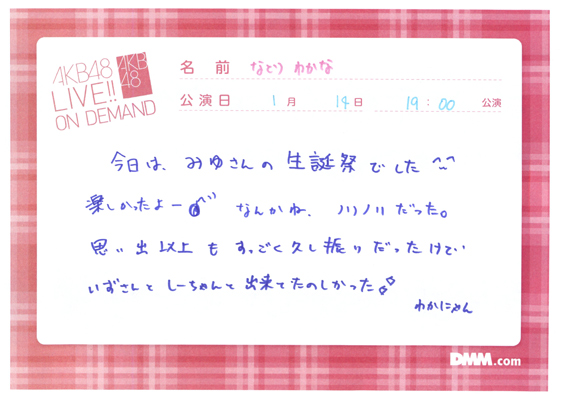 AKB48
LIVE!!
ON DEMAND
AKB
48
名前 なとり わかな
公演日 1月 14日 19:00 公演
今日は、みゆさんの生誕祭でした^^
楽しかったよー なんかね、ノリノリだった。
思い出以上もすっごく久し振りだったけど
いずさんとしーちゃんと出来てたのしかった♪
わかにゃん
DMM.com